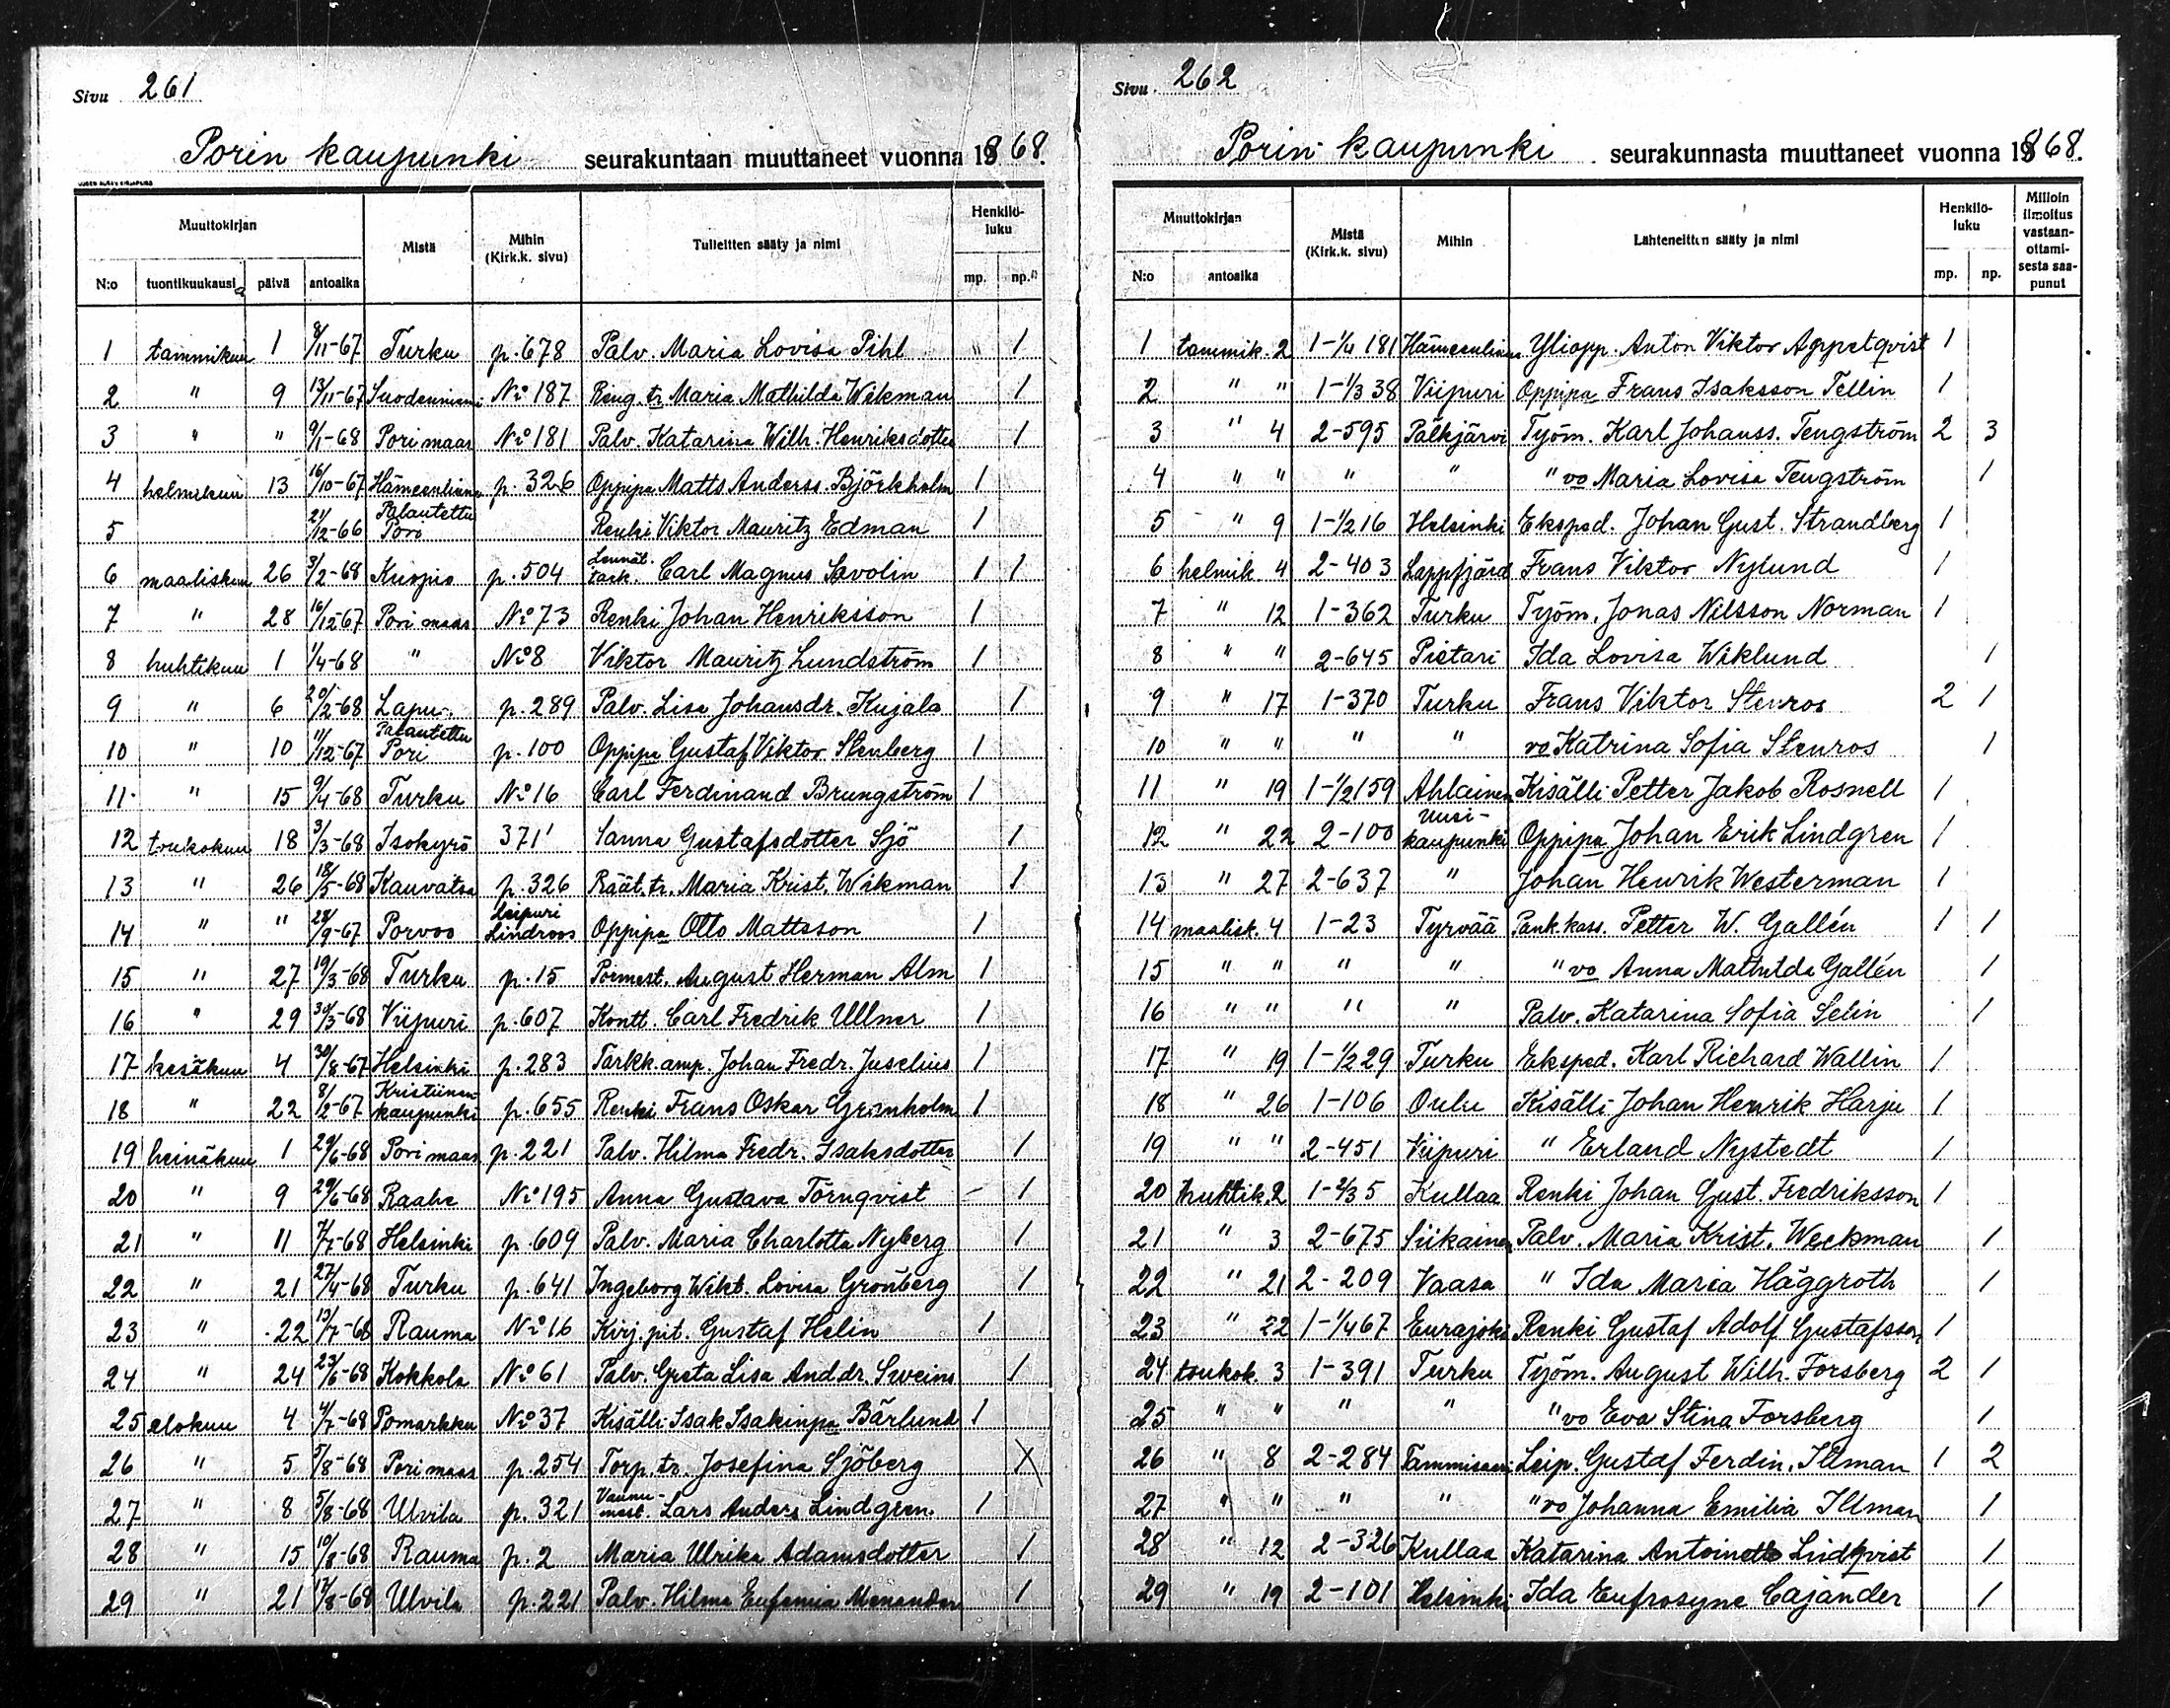 Sivu 261
Porin kaupunki seurakuntaan muuttaneet vuonna 1868.
Muuttokirjan Mistä Mihin (Kirk.k. sivu) Tulleitten sääty ja nimi Henkilö-luku
N:o tuontikuukausi päivä antoaika mp. np.
1 tammikuu 1 8/11-67 Turku p. 678 Palv. Maria Lovisa Pihl " 1
2 " 9 13/11-67 Suodenniemi No 187 Reng. tr Maria Mathilda Wikman 1
3 " " 9/1-68 Pori maas No 181 Palv. Katarina Wilh. Henriksdotter 1
4 helmikuu 13 16/10-67 Hämeenlinna p. 326 Oppipa Matts Anderss. Björkholm 1
5 21/12-66 Palautettu Pori Renki Viktor Mauritz Edman 1
6 maaliskuu 26 3/2-68 Kuopio p. 504 Lennät. tark. Carl Magnus Savolin 1 1
7 " 28 16/12-67 Pori maas No 73 Renki Johan Henriksson 1
8 huhtikuu 1 1/4-68 " No 8 Viktor Mauritz Lundström 1
9 " 6 20/2-68 Lapu p. 289 Palv. Lisa Johansdr. Kujala 1
10 " 10 11/12-67 Palautettu Pori p. 100 Oppipa Gustaf Viktor Stenberg 1
11 " 15 9/4-68 Turku No 16 Carl Ferdinand Brungström 1
12 toukokuu 18 3/3-68 Isokyrö 371 Sanna Gustafsdotter Sjö 1
13 " 26 18/5-68 Kauvatsa p. 326 Räät. tr. Maria Krist. Wikman 1
14 " " 28/9-67 Porvoo Leipuri Lindroos Oppipa Otto Mattsson 1
15 " 27 19/3-68 Turku p. 15 Pormest. August Herman Alm 1
16 " 29 30/3-68 Viipuri p. 607 Kontt. Carl Fredrik Ullner 1
17 kesäkuu 4 30/8-67 Helsinki p. 283 Tarkk. amp. Johan Fredr. Juselius 1
18 " 22 8/2-67 Kristiinan-kaupunki p. 655 Renki Frans Oskar Grönholm 1
19 heinäkuu 1 29/6-68 Pori maas p. 221 Palv. Hilma Fredr. Isaksdotter 1
20 " 9 29/6-68 Raahe No 195 Anna Gustava Törnqvist - 1
21 " 11 7/7-68 Helsinki p. 609 Palv. Maria Charlotta Nyberg 1
22 " 21 27/4-68 Turku p. 641 Ingeborg Wikt. Lovisa Grönberg 1
23 " 22 13/7-68 Rauma No 16 Kirj. pit. Gustaf Helin 1
24 " 24 23/6-68 Kokkola No 61 Palv. Greta Lisa And.dr. Sweins 1
25 elokuu 4 4/7-68 Pomarkku No 37 Kisälli Isak Isakinpa Bärlund 1
26 " 5 5/8-68 Pori maas p. 254 Torp. tr. Josefina Sjöberg X
27 " 8 5/8-68 Ulvila p. 321 Vaunu-mest. Lars Anders Lindgren 1
28 " 15 10/8-68 Rauma p. 2 Maria Ulrika Adamsdotter 1
29 " 21 17/8-68 Ulvila p. 221 Palv. Hilma Eufemia Menander 1
Sivu 262
Porin kaupunki seurakunnasta muuttaneet vuonna 1868.
Muuttokirjan Mistä (Kirk.k. sivu) Mihin Lähteneitten sääty ja nimi Henkilö-luku Milloin ilmoitus vastaan-ottami-sesta saa-punut
N:o antoaika mp. np.
1 tammik. 2 1-1/4 181 Hämeenlinna Yliopp. Anton Viktor Appelqvist 1
2 " " 1-1/3 38 Viipuri Oppipa Frans Isaksson Tellin 1
3 " 4 2-595 Pälkjärvi Työm. Karl Johanss. Tengström 2 3
4 " " " " " vo Maria Lovisa Tengström 1
5 " 9 1-1/2 16 Helsinki Eksped. Johan Gust. Strandberg 1
6 helmik 4 2-403 Lappfjärd Frans Viktor Nylund 1
7 " 12 1-362 Turku Työm. Jonas Nilsson Norman 1
8 " " 2-645 Pietari Ida Lovisa Wiklund 1
9 " 17 1-370 Turku Frans Viktor Stenros 2 1
10 " " " " vo Katrina Sofia Stenros 1
11 " 19 1-1/2 159 Ahlainen Kisälli Petter Jakob Rosnell 1
12 " 22 2-100 Uusi-kaupunki Oppipa Johan Erik Lindgren 1
13 " 27 2-637 " Johan Henrik Westerman 1
14 maalisk. 4 1-23 Tyrvää Pank. kass. Petter W. Gallén 1 1
15 " " " " " vo Anna Mathilda Gallén 1
16 " " " " Palv. Katarina Sofia Selin 1
17 " 19 1-1/2 29 Turku Eksped. Karl Richard Wallin 1
18 " 26 1-106 Oulu Kisälli Johan Henrik Harju 1
19 " " 2-451 Viipuri " Erland Nystedt 1
20 huhtik. 2 1-2/3 5 Kullaa Renki Johan Gust. Fredriksson 1
21 " 3 2-675 Siikainen Palv. Maria Krist. Weckman 1
22 " 21 2-209 Vaasa " Ida Maria Häggroth 1
23 " 22 1-1/4 67 Eurajoki Renki Gustaf Adolf Gustafsson 1
24 toukok. 3 1-391 Turku Työm. August Wilh. Forsberg 2 1
25 " " " " " vo Eva Stina Forsberg 1
26 " 8 2-284 Tammisaari Leip. Gustaf Ferdin. Illman 1 2
27 " " " " " vo Johanna Emilia Illman 1
28 " 12 2-326 Kullaa Katarina Antoinette Lindqvist 1
29 " 19 2-101 Helsinki Ida Eufrosyne Cajander 1